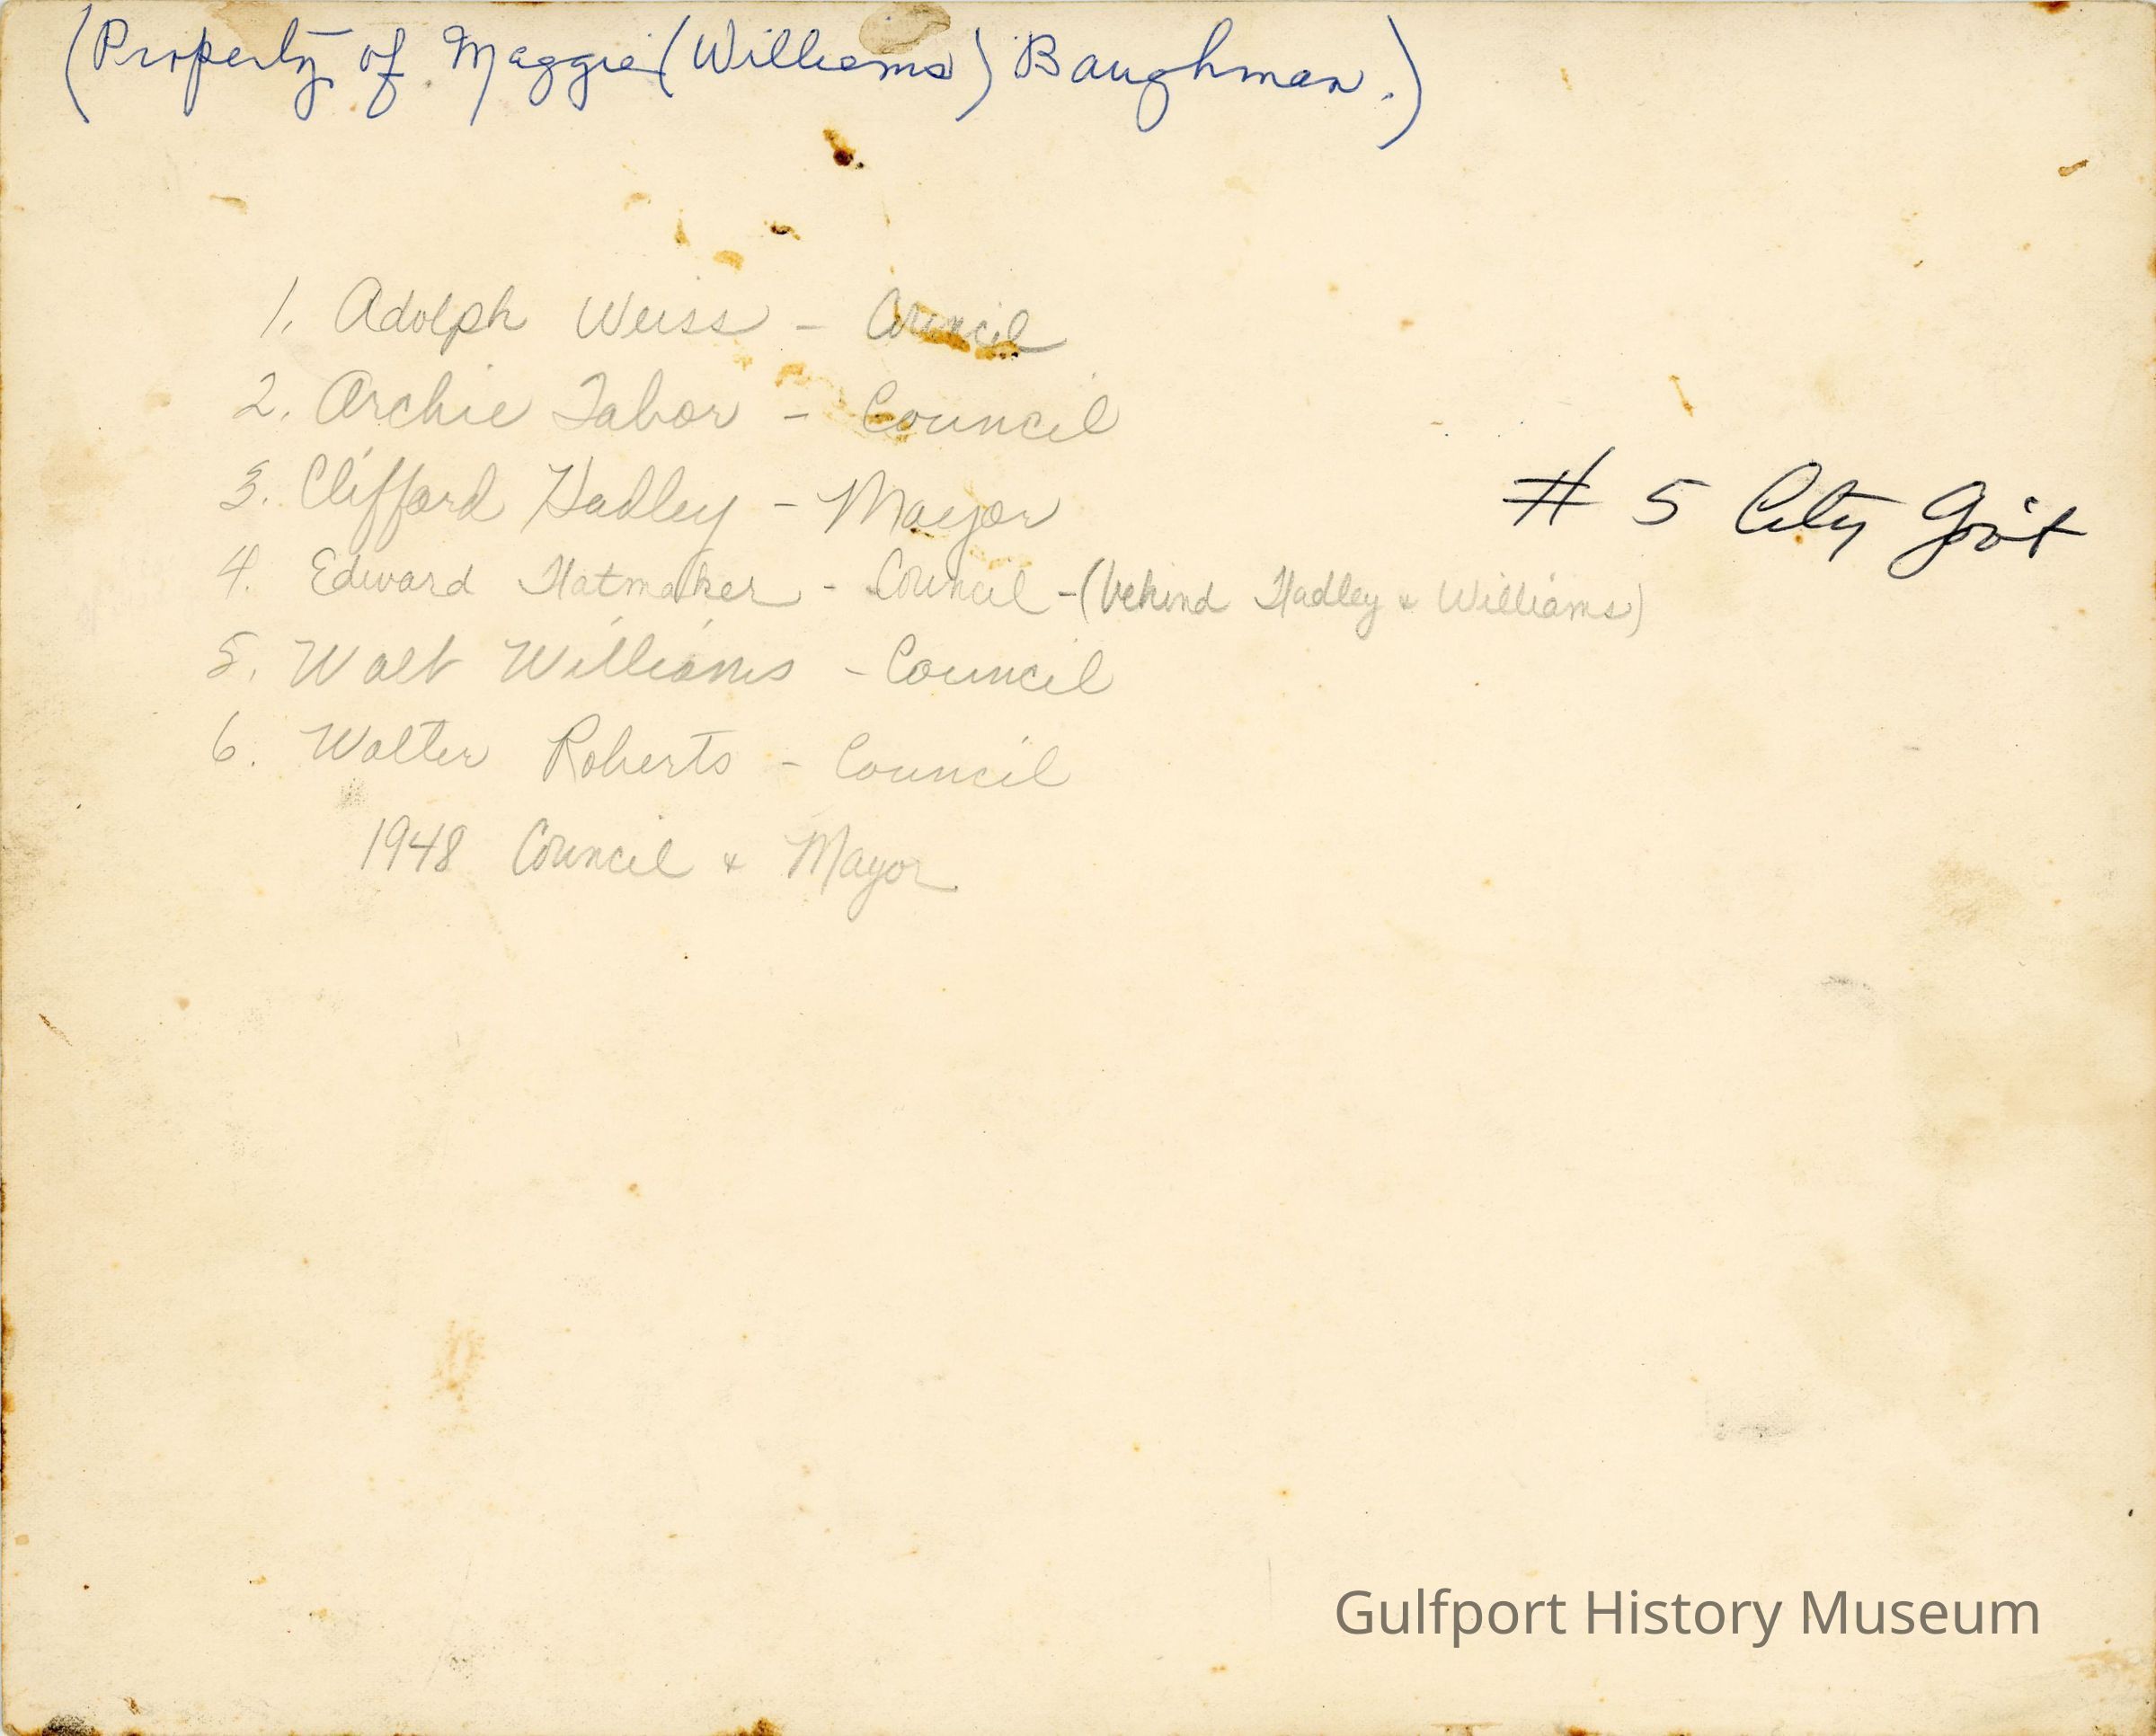 (Property of Maggie (Williams) Baughman.)
1. Adolph Weiss - Council
2. Archie Tabor - Council
3. Clifford Hadley - Mayor
# 5 City Gov't
4. Edward Hatmaker - Council - (behind Hadley & Williams)
5. Walt Williams - Council
6. Walter Roberts - Council
1948 Council & Mayor
Gulfport History Museum